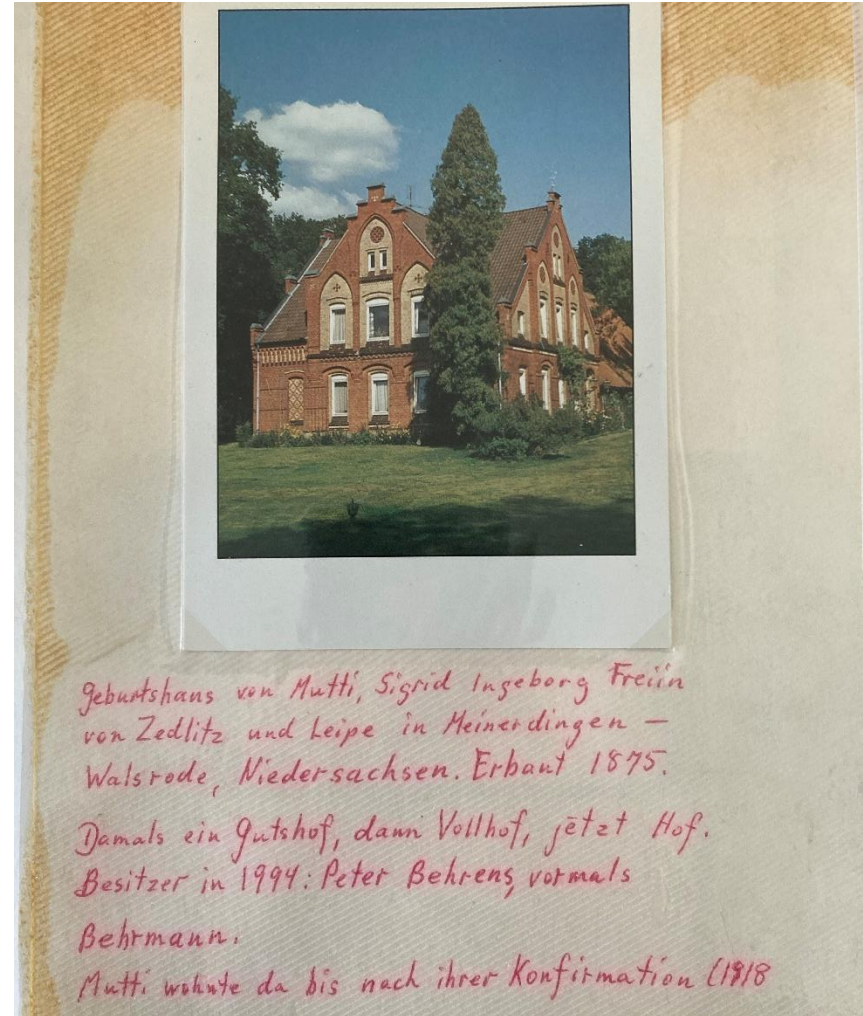 Geburtshaus von Mutti, Sigrid Ingeborg Freiin
von Zedlitz und Leipe in Meinerdingen –
Walsrode, Niedersachsen. Erbaut 1875.
Damals ein Gutshof, dann Vollhof, jetzt Hof.
Besitzer in 1994: Peter Behrens, vormals
Behrmann.
Mutti wohnte da bis nach ihrer Konfirmation (1918